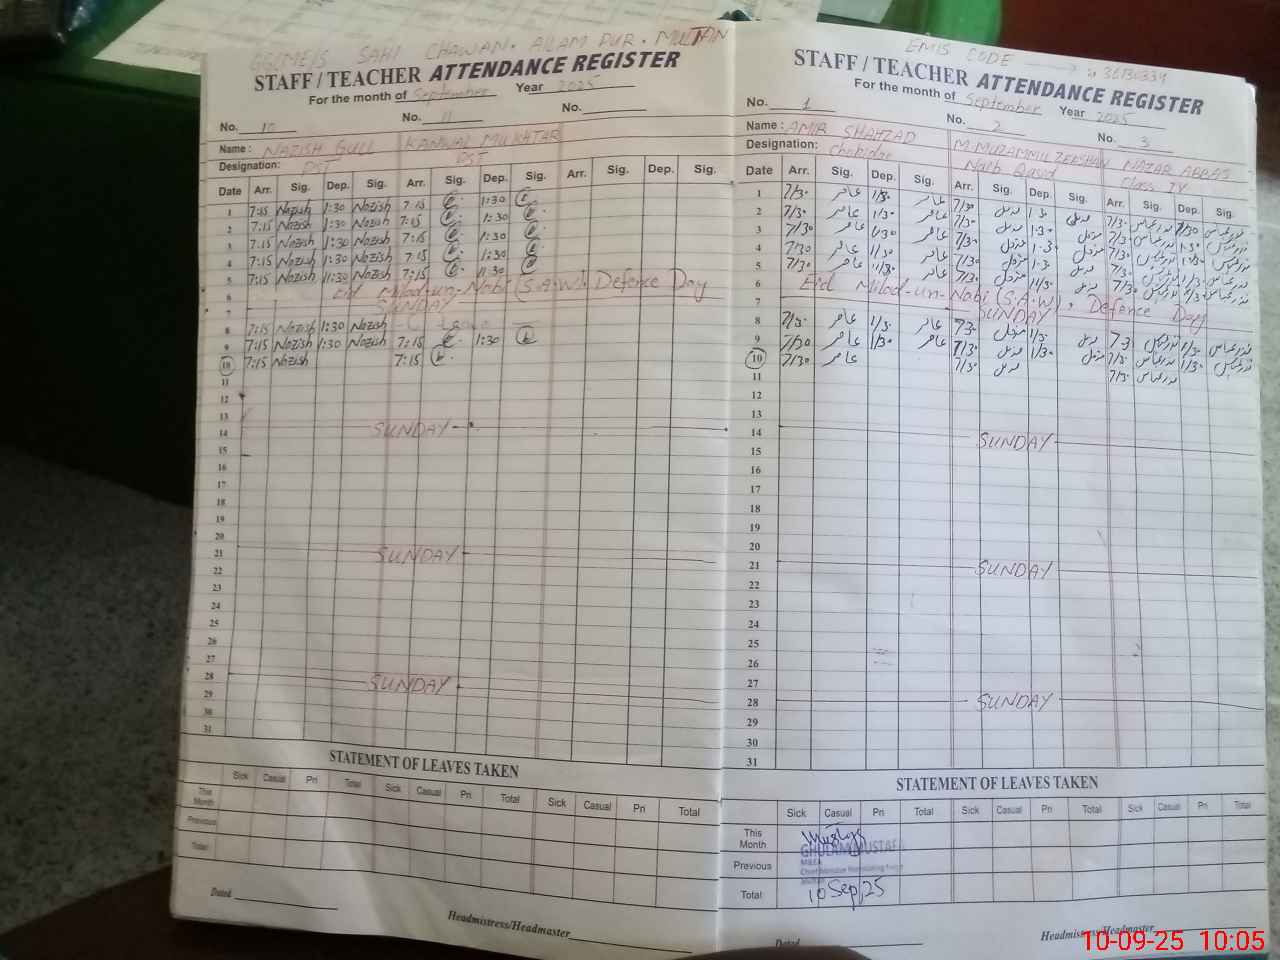 GGCMEIS SAHI CHAWAN. ALAM PUR. MULTAN
STAFF / TEACHER ATTENDANCE REGISTER
For the month of September Year 2025
No. 10 No. 11 No.
Name: NAZISH GULL KANWAL MUKHTAR
Designation: PST PST
Date Arr. Sig. Dep. Sig. Arr. Sig. Dep. Sig. Arr. Sig. Dep. Sig.
1 7:15 Nazish 1:30 Nazish 7:15 1:30
2 7:15 Nazish 1:30 Nazish 7:15 1:30
3 7:15 Nazish 1:30 Nazish 7:15 1:30
4 7:15 Nazish 1:30 Nazish 7:15 1:30
5 7:15 Nazish 11:30 Nazish 7:15 11:30
6 Eid Milad-un-Nabi (S.A.W), Defence Day
7 SUNDAY
8 7:15 Nazish 1:30 Nazish
9 7:15 Nazish 1:30 Nazish 7:15 1:30
10 7:15 Nazish 7:15
11
12
13
14 SUNDAY
15
16
17
18
19
20
21 SUNDAY
22
23
24
25
26
27
28 SUNDAY
29
30
31
STATEMENT OF LEAVES TAKEN
Sick Casual Pri Total Sick Casual Pri Total Sick Casual Pri Total
This Month
Previous
Total
Dated
Headmistress/Headmaster
EMIS CODE
STAFF / TEACHER ATTENDANCE REGISTER
For the month of September Year 2025
No. 1 No. 2 No. 3
Name: AMIR SHAHZAD M. MUZAMMIL ZEESHAN NAZAR ABBAS
Designation: Chokidar Naib Qasid Class IV
Date Arr. Sig. Dep. Sig. Arr. Sig. Dep. Sig. Arr. Sig. Dep. Sig.
1 7/30 عامر 1/30 عامر 7/30 مزمل 1:30 مزمل 7/30 نذر عباس 1/30 نذر عباس
2 7/30 عامر 1/30 عامر 7/30 مزمل 1:30 مزمل 7/30 نذر عباس 1:30 نذر عباس
3 7/30 عامر 1/30 عامر 7/30 مزمل 1:30 مزمل 7/30 نذر عباس 1:30 نذر عباس
4 7/30 عامر 1/30 عامر 7/30 مزمل 1:30 مزمل 7/30 نذر عباس 1/30 نذر عباس
5 7/30 عامر 11/30 عامر 7/30 مزمل 11/30 مزمل 7/30 نذر عباس 1/30 نذر عباس
6 Eid Milad-un-Nabi (S.A.W), Defence Day
7 SUNDAY
8 7/30 عامر 1/30 عامر 7/30 مزمل 1/30 مزمل 7:30 نذر عباس 1/30 نذر عباس
9 7/30 عامر 1/30 عامر 7/30 مزمل 1/30 مزمل 7/30 نذر عباس 1/30 نذر عباس
10 7/30 عامر 7/30 مزمل 7/30 نذر عباس
11
12
13
14 SUNDAY
15
16
17
18
19
20
21 SUNDAY
22
23
24
25
26
27
28 SUNDAY
29
30
31
STATEMENT OF LEAVES TAKEN
Sick Casual Pri Total Sick Casual Pri Total Sick Casual Pri Total
This Month
Previous
Total
GHULAM MUSTAFA
MEA
10 Sep/25
Dated
Headmistress/Headmaster
10-09-25 10:05